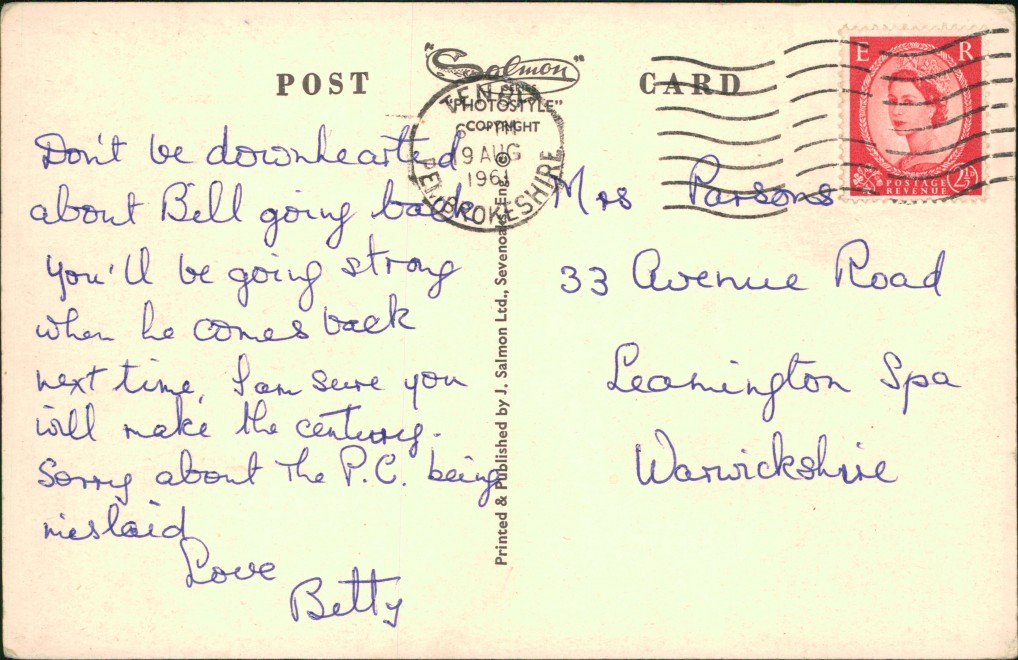 POST CARD
"Salmon"
SERIES
"PHOTOSTYLE"
COPYRIGHT
TENBY
PM
9 AUG
1961
PEMBROKESHIRE
E R
POSTAGE
REVENUE
2½D
Don't be downhearted
about Bill going back
you'll be going strong
when he comes back
next time, I am sure you
will make the century.
Sorry about the P.C. being
mislaid
Love
Betty
Printed & Published by J. Salmon Ltd., Sevenoaks, Eng. ©
Mrs Parsons
33 Avenue Road
Leamington Spa
Warwickshire